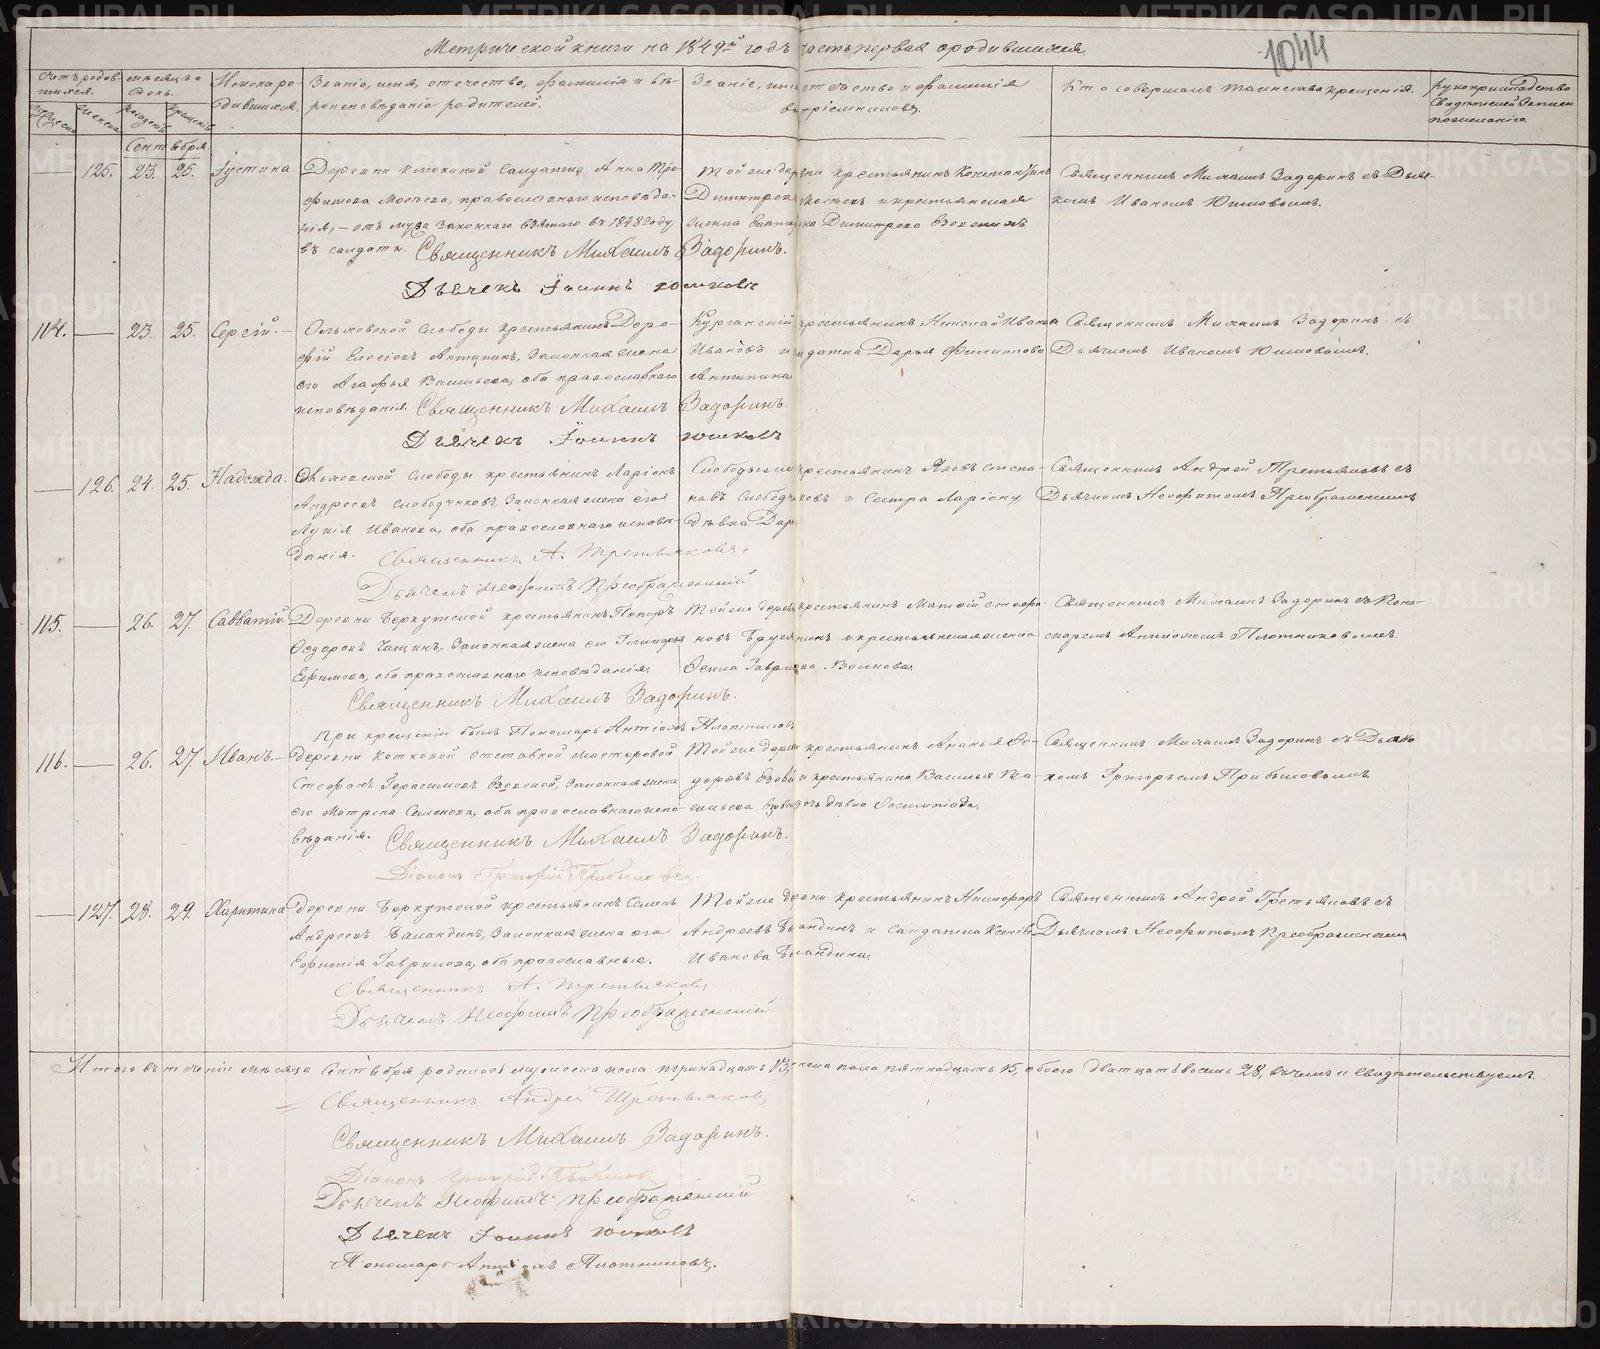 Метрической книги на 1849й годъ часть первая о родившихся
1044
Счетъ родившихся.
Мѣсяцъ и день.
Имена родившихся.
Званіе, имя, отечество, фамилія и вѣроисповѣданіе родителей.
Званіе, имя отечество и фамилія воспріемниковъ.
Кто совершалъ таинство крещенія.
Рукоприкладство свидѣтелей записи по желанію.
Мужеска
Женска
рожденія
крещенія
Сентября
125. 23. 25. Іустина
Деревни солдатка Анна Тро-
фимова православнаго исповѣда-
нія, – отъ мужа законнаго взятаго въ 1848 году
въ солдаты.
Той же деревни крестьянинъ Константинъ
Димитрева Взвозныхъ
Священникъ Михаилъ Задоринъ съ Дьяч-
комъ Иваномъ Юшковымъ.
Священникъ Михаилъ Задоринъ.
Дьячекъ Іоаннъ Юшковъ
114. 23. 25. Сергій.
Ольховской слободы крестьянинъ Доро-
фей Елесіевъ Антипинъ, законная жена
его Агафья Васильева, оба православнаго
исповѣданія.
Курганскій крестьянинъ Николай Ивановъ
Ивановъ и солдатка Дарья Филиппова
Антипина
Священникъ Михаилъ Задоринъ съ
Дьячкомъ Иваномъ Юшковымъ.
Священникъ Михаилъ Задоринъ.
Дьячекъ Іоаннъ Юшковъ
126. 24. 25. Надежда.
Ольховской слободы крестьянинъ Ларіонъ
Андреевъ Слободчиковъ, законная жена его
Лукія Иванова, оба православнаго исповѣ-
данія.
Слободы крестьянинъ Яковъ Степа-
новъ Слободчиковъ и сестра Ларіону
дѣвка Дарья
Священникъ Андрей Третьяковъ съ
Дьячкомъ Неофитомъ Преображенскимъ
Священникъ А. Третьяковъ.
Дьячекъ Неофитъ Преображенскій
115. 26. 27. Савватій.
Деревни Беркутской крестьянинъ
Ѳедоровъ Чащинъ, законная жена его Гликерія
Ефимова, оба православнаго исповѣданія.
Той же деревни крестьянинъ Матвій Стефа-
новъ и крестьянская жена
Ѳекла Гаврилова Волкова.
Священникъ Михаилъ Задоринъ съ Поно-
маремъ Антіохомъ Плотниковымъ.
Священникъ Михаилъ Задоринъ.
При крещеніи былъ Пономарь Антіохъ Плотниковъ
116. 26. 27. Иванъ.
Деревни Котковой отставной мастеровой
Стефанъ Герасимовъ законная жена
его Матрена Семенова, оба православнаго испо-
вѣданія.
Той же деревни крестьянинъ Ананья Ѳе-
доровъ и крестьянина Василья
дочь дѣвка Олимпіада.
Священникъ Михаилъ Задоринъ съ Діако-
номъ Григорьемъ Прибыловымъ
Священникъ Михаилъ Задоринъ.
Діаконъ Григорій Прибыловъ.
127. 28. 29. Харитина
Деревни Беркутской крестьянинъ Семенъ
Андреевъ Баландинъ, законная жена его
Евфимія Гаврилова, оба православные.
Той же деревни крестьянинъ Никифоръ
Андреевъ Баландинъ и солдатка Ксенія
Иванова Баландина.
Священникъ Андрей Третьяковъ съ
Дьячкомъ Неофитомъ Преображенскимъ
Священникъ А. Третьяковъ.
Дьячекъ Неофитъ Преображенскій
Итого въ теченіи мѣсяца Сентября родилось мужеска пола тринадцать 13, женска пола пятнадцать 15, обоего двадцать восемь 28, въ чемъ и свидѣтельствуемъ.
Священникъ Андрей Третьяковъ
Священникъ Михаилъ Задоринъ.
Діаконъ Григорій Прибыловъ
Дьячекъ Неофитъ Преображенскій
Дьячекъ Іоаннъ Юшковъ
Пономарь Антіохъ Плотниковъ.
METRIKI.GASO-URAL.RU